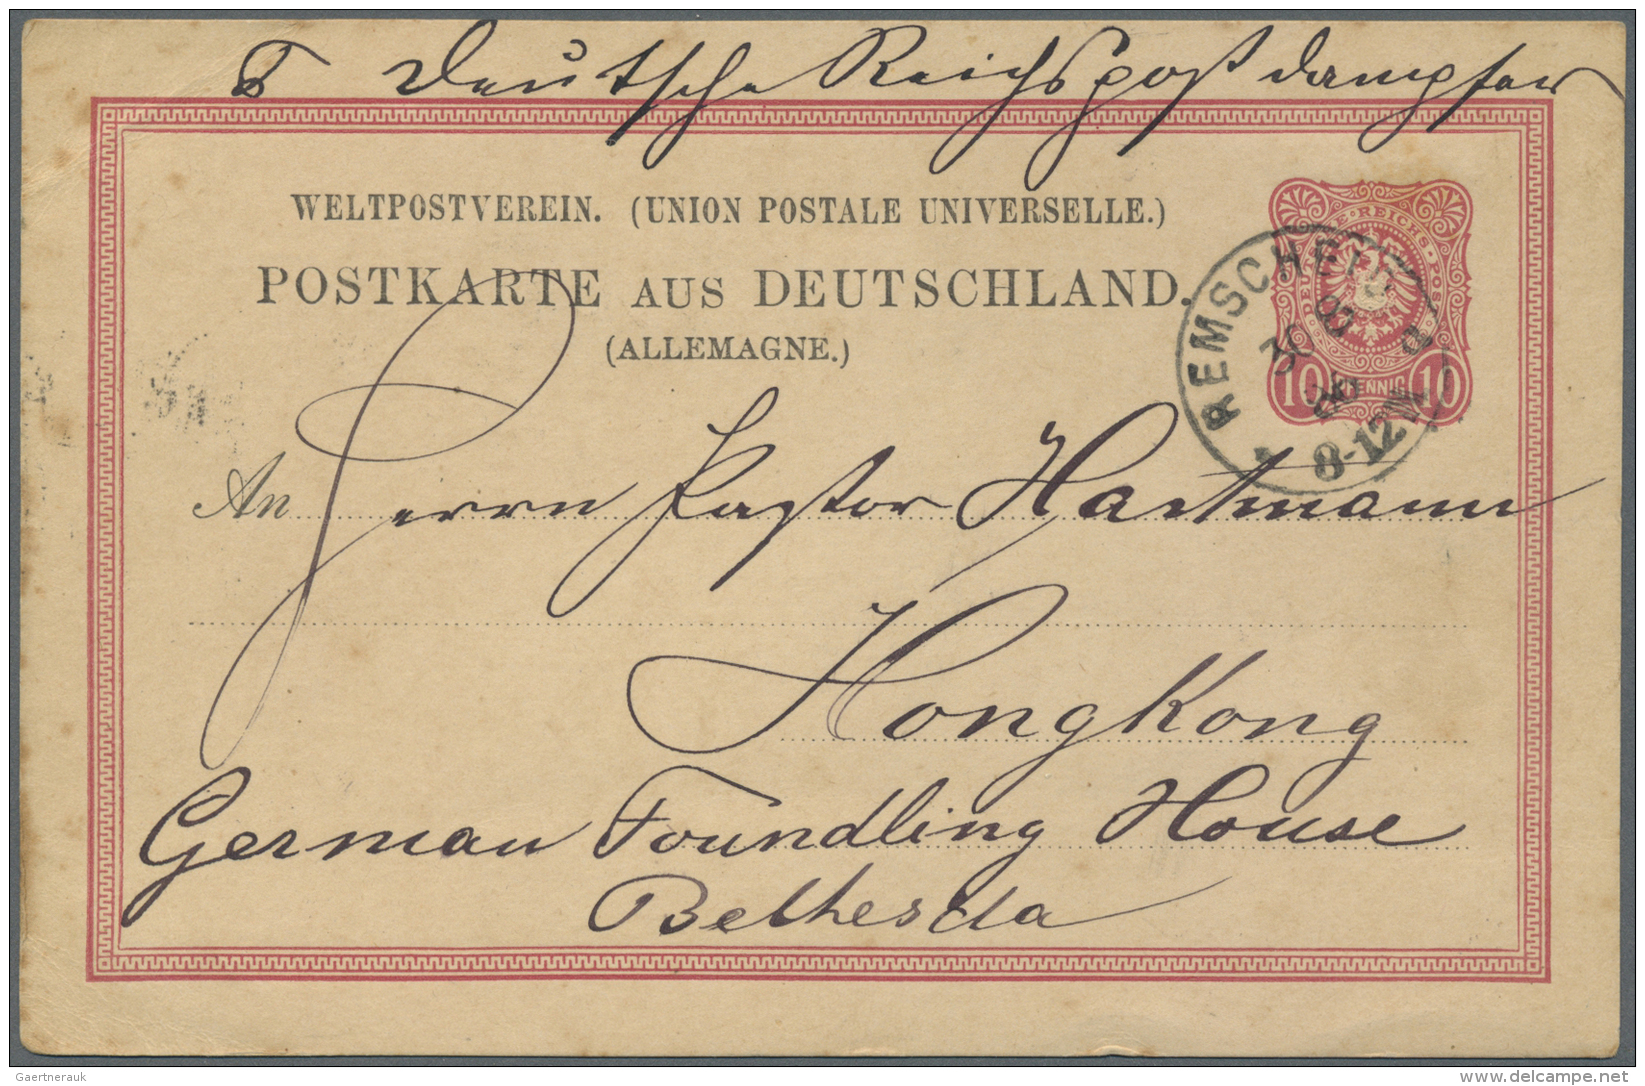 Deutsche Reichspostdampfer
WELTPOSTVEREIN. (UNION POSTALE UNIVERSELLE.)
POSTKARTE AUS DEUTSCHLAND.
(ALLEMAGNE.)
DEUTSCHE REICHS-POST
10 PFENNIG 10
REMSCHEID
8-12
An Herrn Pastor Hartmann
HongKong
German Foundling House
Bethesda
Gaertnerauk
delcampe.net